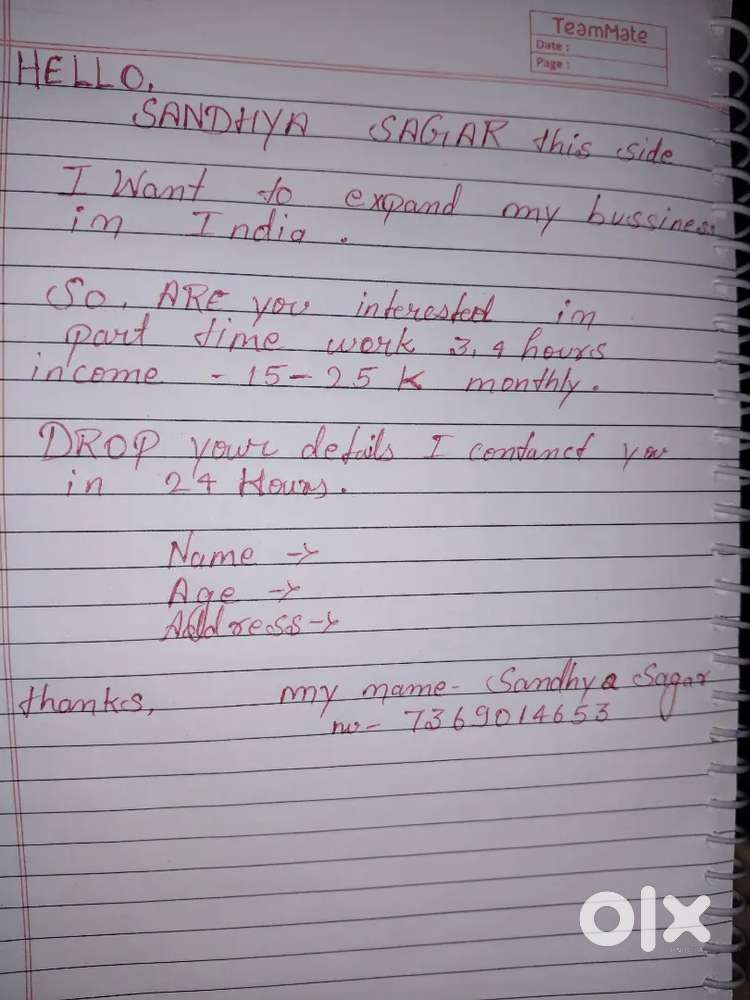 TeamMate
Date :
Page :
HELLO,
SANDHYA SAGAR this side
I Want to expand my bussiness
in India.
So, ARE you interested in
part time work 3,4 hours
income - 15-25 K monthly.
DROP your details I contanct you
in 24 Hours.
Name →
Age →
Address →
thanks, my name - Sandhya Sagar
no - 7369014653
olx
INDIA